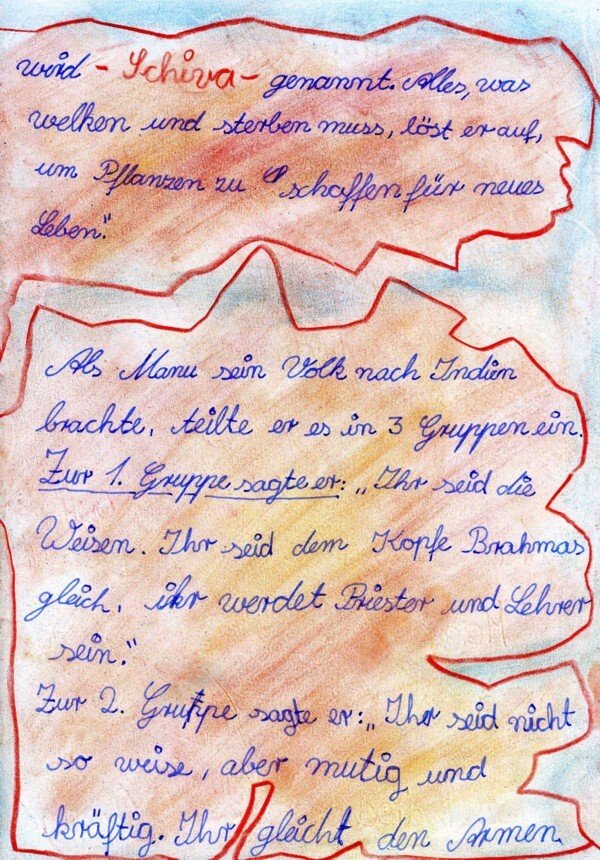 wird - Schiva - genannt. Alles, was
welken und sterben muss, löst er auf,
um Pflanzen zu schaffen für neues
Leben."
Als Manu sein Volk nach Indien
brachte, teilte er es in 3 Gruppen ein.
Zur 1. Gruppe sagte er: „Ihr seid die
Weisen. Ihr seid dem Kopfe Brahmas
gleich, ihr werdet Priester und Lehrer
sein."
Zur 2. Gruppe sagte er: „Ihr seid nicht
so weise, aber mutig und
kräftig. Ihr gleicht den Armen